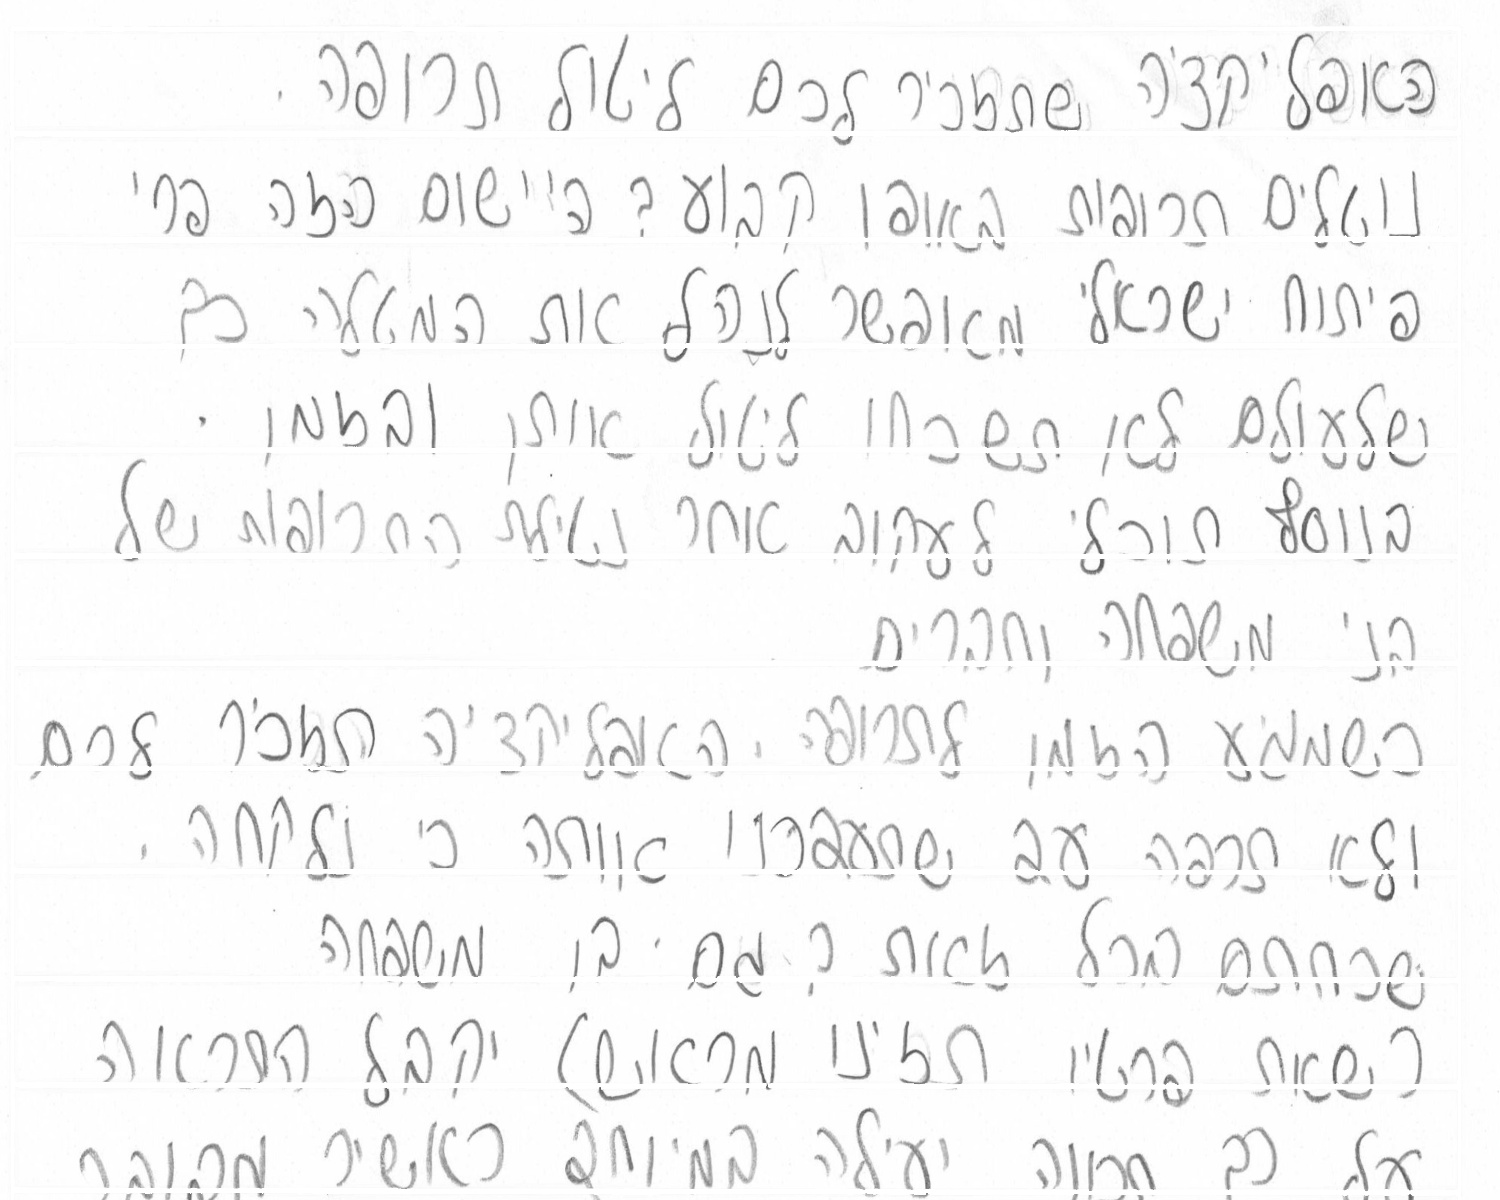 האפליקציה שתזכיר לכם ליטול תרופה.
נוטלים תרופות באופן קבוע? היישום הזה פרי
פיתוח ישראלי מאפשר לנהל את המטלה כך
שלעולם לא תשכחו ליטול אותן ובזמן.
בנוסף תוכלי לעקוב אחר נטילת התרופות של
בני משפחה וחברים
השממע הזמן לתרופה. האפליקציה תזכיר לכם
ולא תרפה עב שתעבכנו אותה כי נלקחה.
שכחתם בכל זאת? גם בן משפחה
(שאת פרטיו תזינו מראש) יקבל התראה
על כך תכונה יעילה במיוחד כאשר מקובר